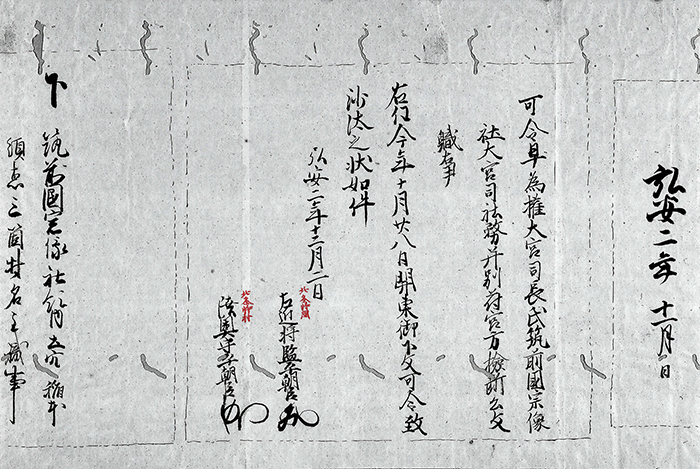 弘安二年 十一月 日
可令早為権大宮司長氏筑前國宗像
社大宮司社務并別府官方撿断公文
職事
右任今年十月廿八日關東御下文可令致
沙汰之状如件
弘安二年十二月二日
左近将監平朝臣
北条時国
陸奥守平朝臣
北条時村
下 筑前國宗像社領
須恵三箇村名主職事